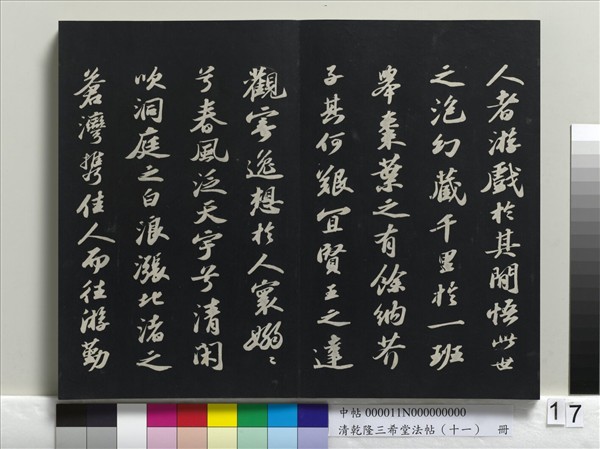 人者游戲於其間悟此世
之泡幻藏千里於一班
舉棗葉之有餘納芥
子其何艱宜賢王之達
觀寄逸想於人寰嫋〻
兮春風泛天宇兮清閑
吹洞庭之白浪漲北渚之
蒼灣攜佳人而往游勤
中帖 000011N000000000
清乾隆三希堂法帖（十一） 冊
17